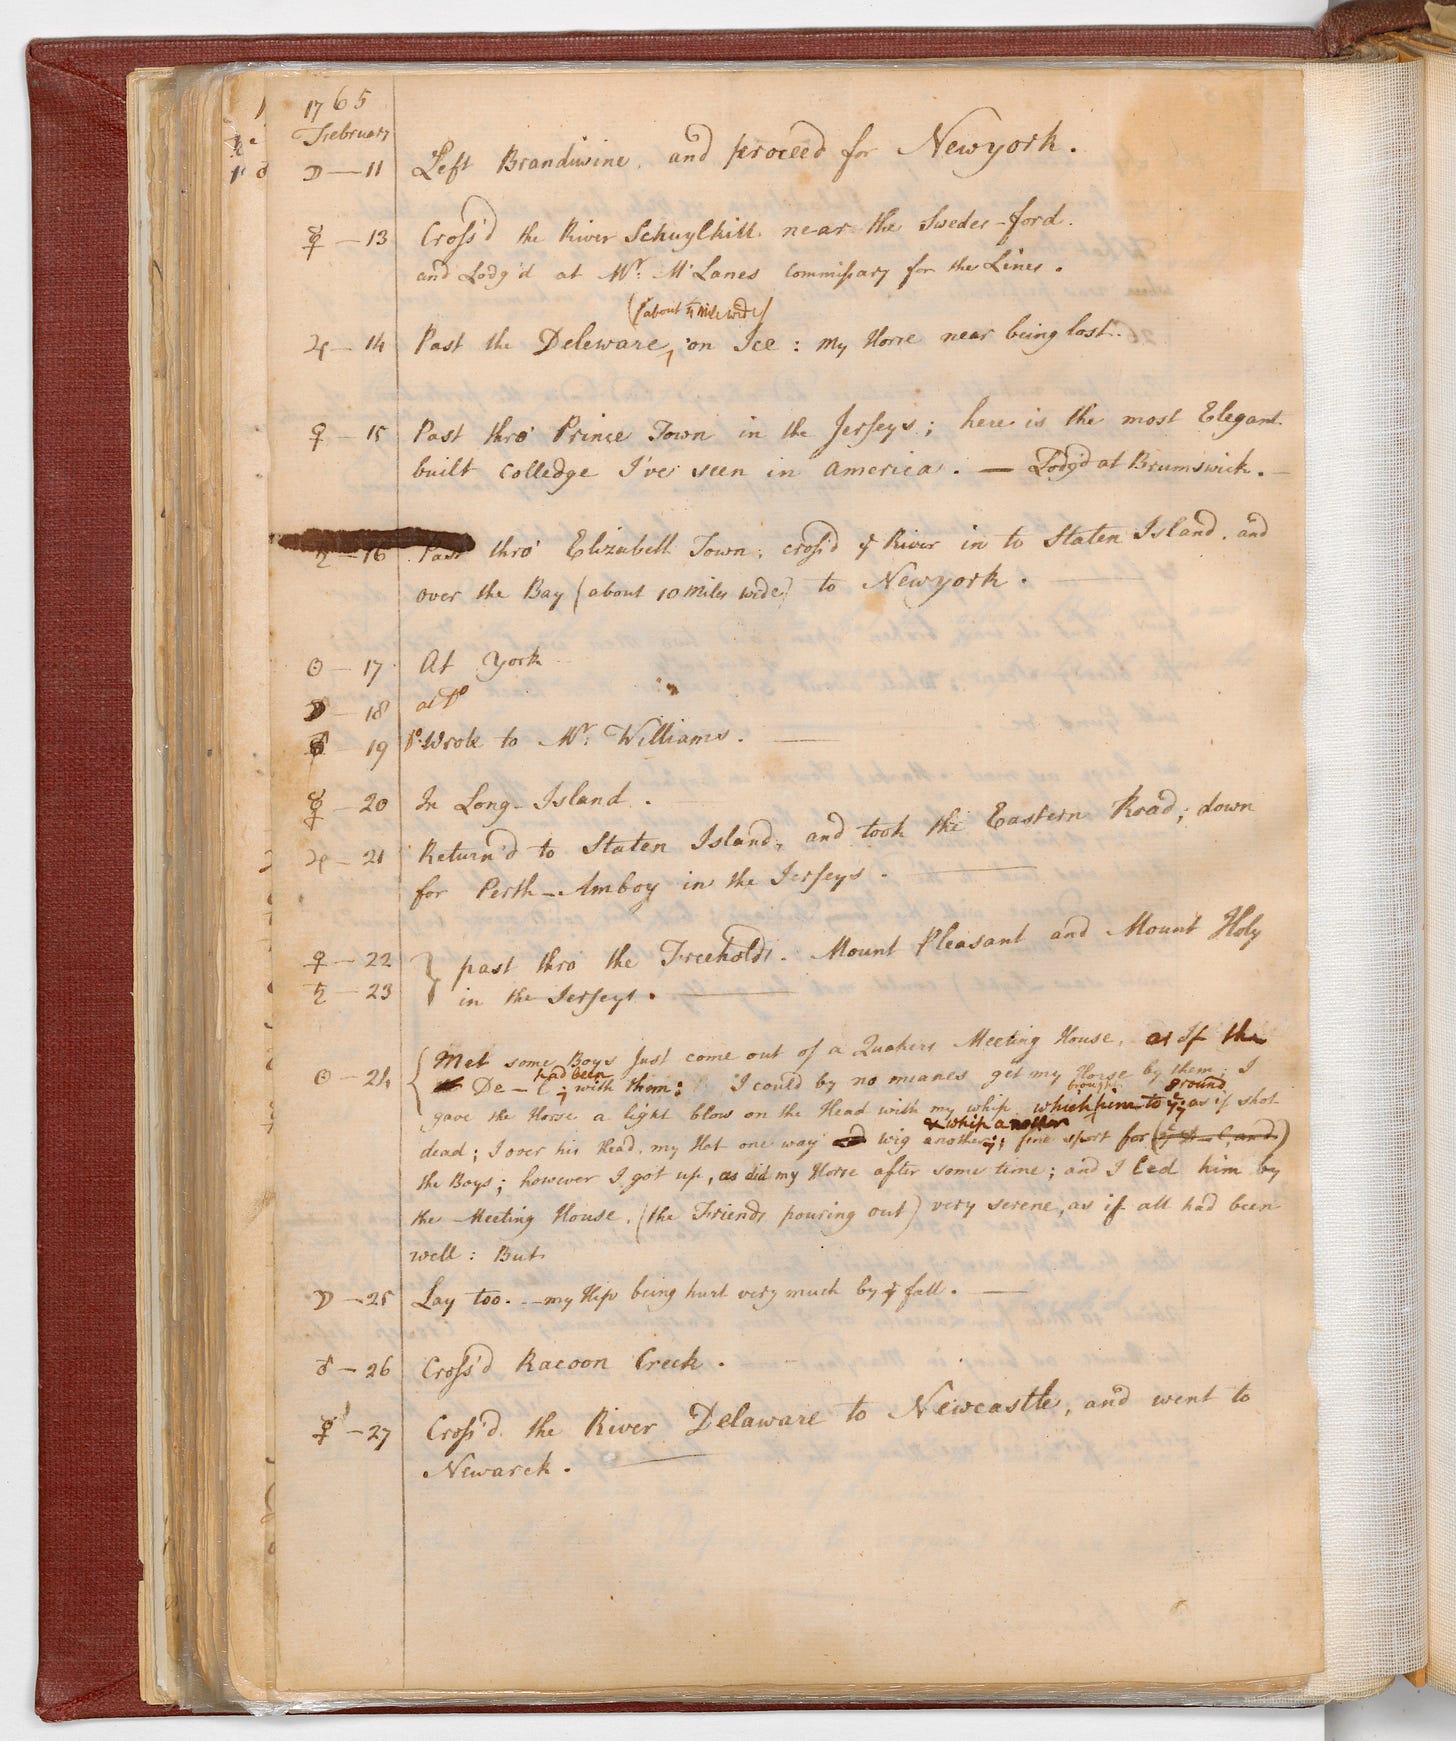 1765
February
☽ — 11 Left Brandiwine. and proceed for Newyork.
☿ — 13 Cross'd the River Schuylkill near the Swedes-ford.
and Lodg'd at Mr. McLanes Commissary for the Lines.
(about ¼ Mile wide)
♃ — 14 Past the Deleware, on Ice: my Horse near being lost.
♀ — 15 Past thro' Prince Town in the Jerseys; here is the most Elegant
built Colledge I've seen in America. — Lodg'd at Brumswick. —
♄ — 16 Past thro' Elizabeth Town; cross'd ye River in to Staten Island. and
over the Bay (about 10 Miles wide) to Newyork.
☉ — 17 At York
☽ — 18 at Do
♂ — 19 Do Wrote to Mr. Williams. —
☿ — 20 In Long-Island.
♃ — 21 Return'd to Staten Island, and took the Eastern Road; down
for Perth-Amboy in the Jerseys. —
♀ — 22 } past thro the Freeholds. Mount Pleasant and Mount Holy
♄ — 23 in the Jerseys. —
☉ — 24 { Met some Boys Just come out of a Quakers Meeting House. as if the
had been
De—l with them: I could by no means get my Horse by them. I
brought ground
gave the Horse a light blow on the Head with my whip which him to ye as if shot
& whip another
dead; I over his Head, my Hat one way wig another; fine sport for
the Boys; however I got up, as did my Horse after some time; and I Led him by
the Meeting House, (the Friends pouring out) very serene, as if all had been
well: But
☽ — 25 Lay too. — my Hip being hurt very much by ye fall. —
♂ — 26 Cross'd Racoon Creek.
☿ — 27 Cross'd the River Delaware to Newcastle, and went to
Newarck. —